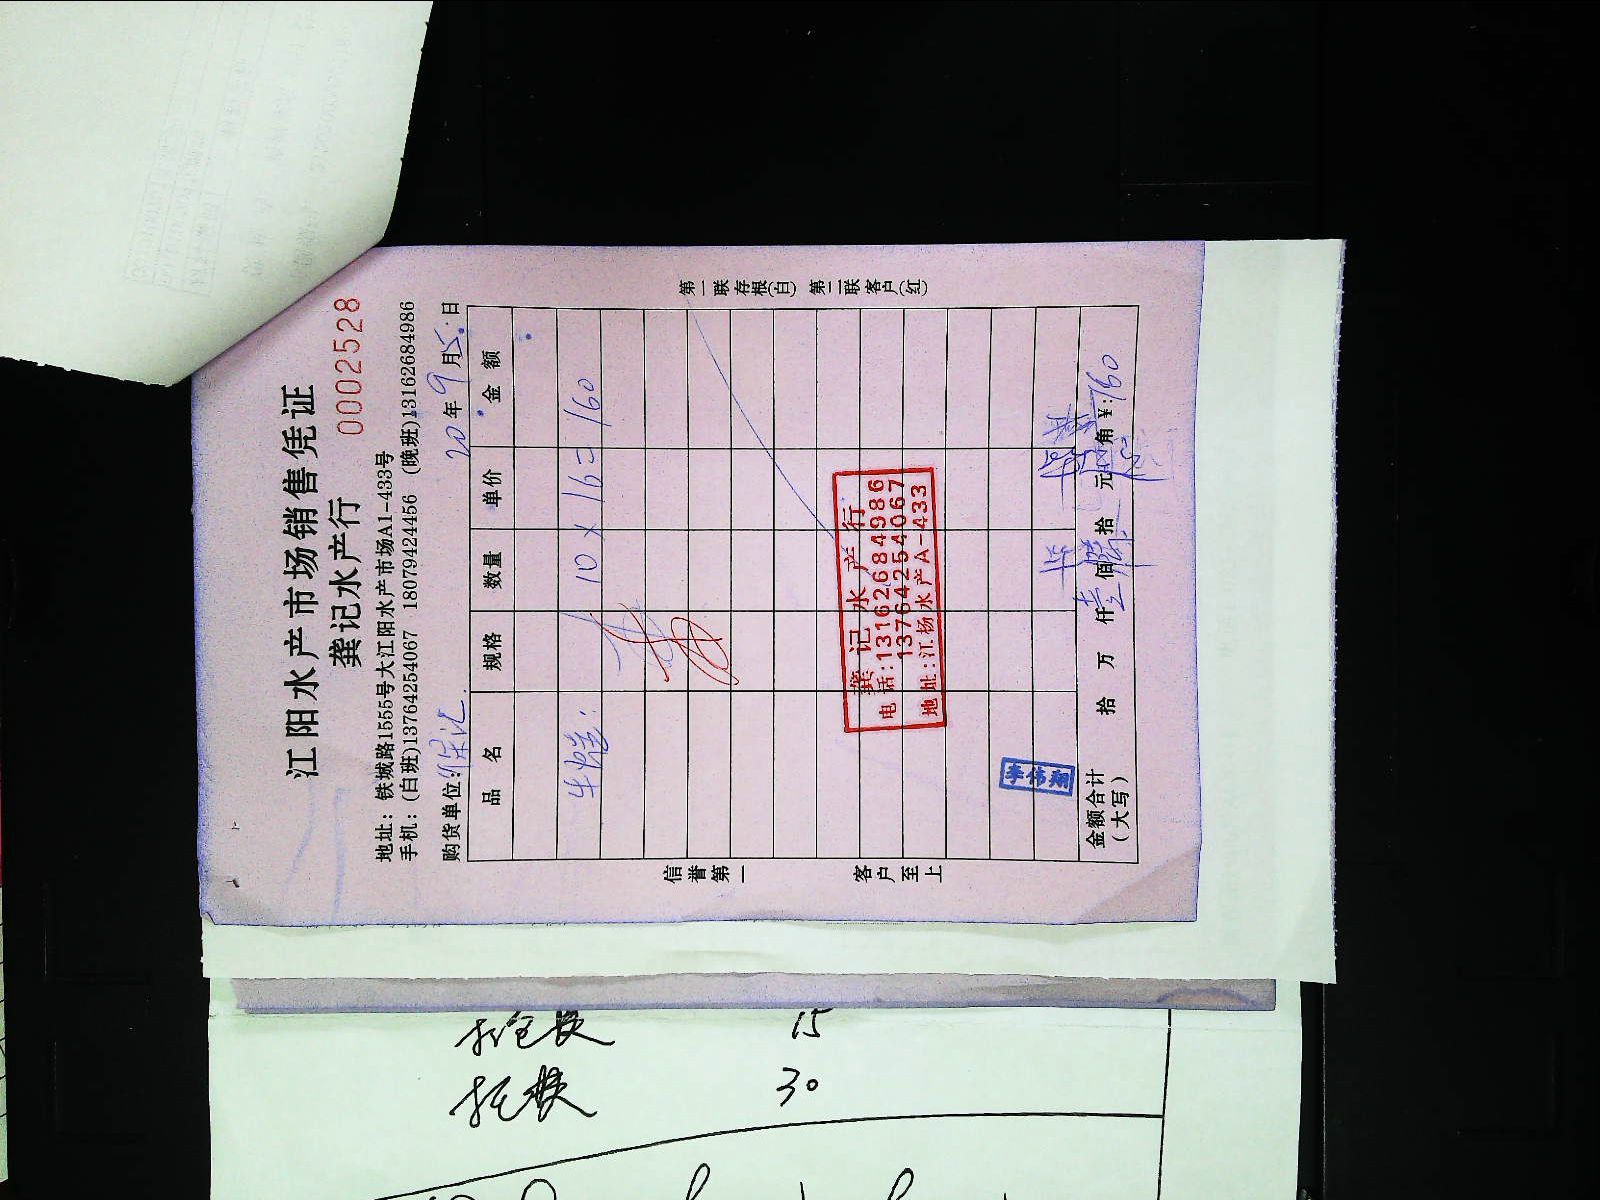 江阳水产市场销售凭证
龚记水产行
0002528
地址：铁城路1555号大江阳水产市场A1-433号
手机：(白班)13764254067 18079424456 (晚班)13162684986
购货单位：
20年9月5日
品名 规格 数量 单价 金额
牛蛙 10×16=160
第一联存根(白) 第二联客户(红)
信誉第一 客户至上
龚记水产行
电话：13162684986
13764254067
地址：江杨水产A-433
李伟翔
金额合计
(大写) 拾 万 仟 壹 佰 拾 元 角 ¥：160
打包费 15
托费 30